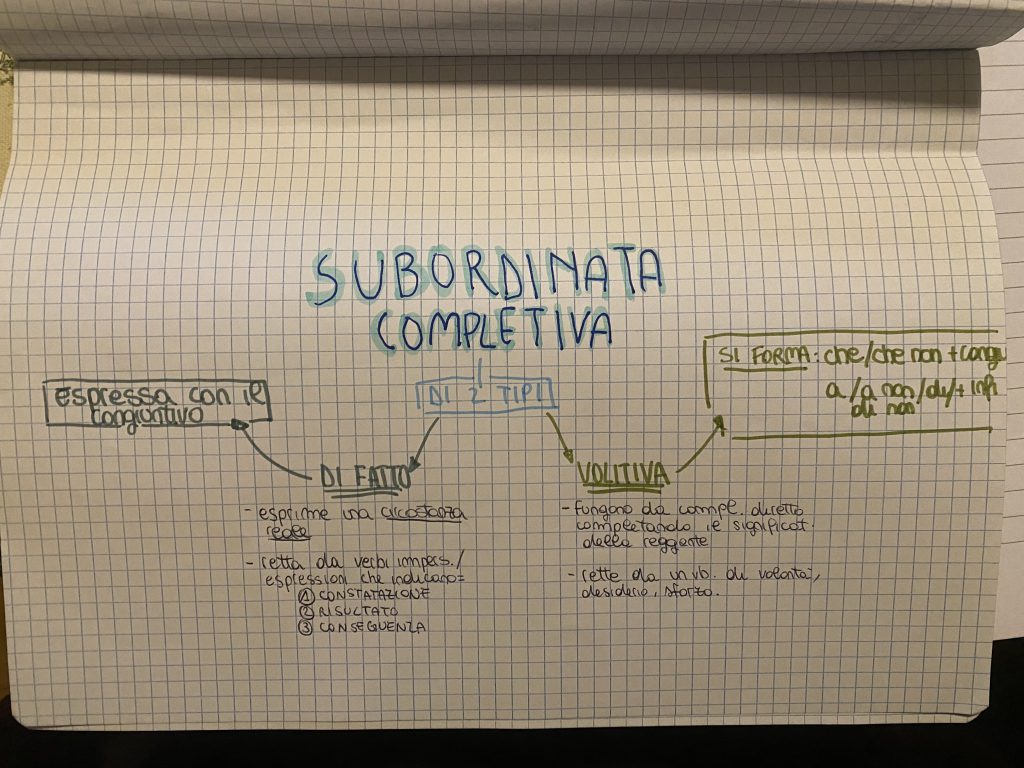 SUBORDINATA
COMPLETIVA
DI 2 TIPI
espressa con il
congiuntivo
SI FORMA: che/che non + cong
a/a non/di/+ inf
di non
DI FATTO
- esprime una circostanza
reale
- retta da verbi impers./
espressioni che indicano=
① CONSTATAZIONE
② RISULTATO
③ CONSEGUENZA
VOLITIVA
- Fungono da compl. diretto
completando il significat.
della reggente
- rette da un vb. di volontà,
desiderio, sforzo.